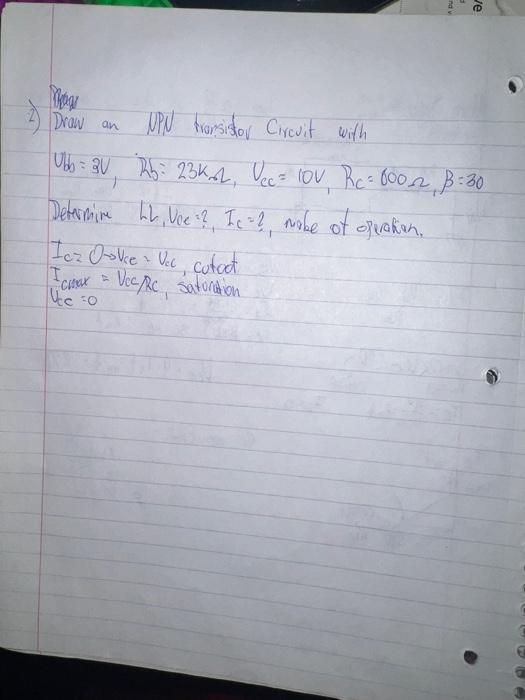 2) Draw an NPN transistor Circuit with
Vbb = 3V, Rb = 23KΩ, Vcc = 10V, Rc = 600Ω, β = 30
Determine LL, Vce = ?, Ic = ?, mode of operation.
Ic = 0 → Vce = Vcc, cutoff
Icmax = Vcc/Rc, saturation
Vce = 0